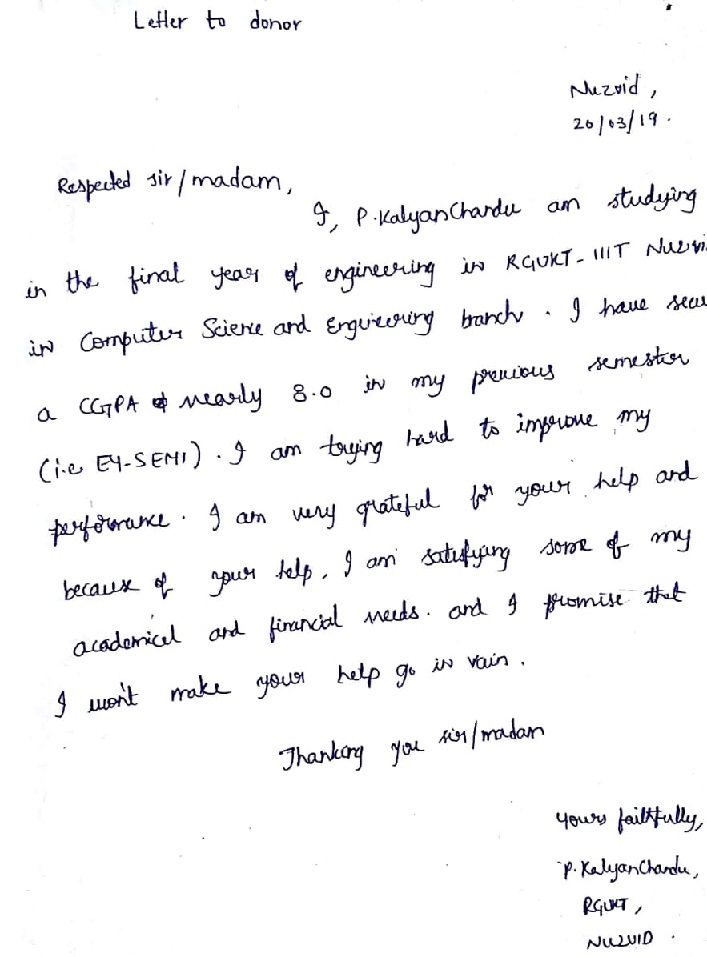 Letter to donor
Nuzvid,
20/03/19.
Respected sir/madam,
I, P.KalyanChandu am studying
in the final year of engineering in RGUKT-IIIT Nuzvi
in Computer Science and Engineering branch. I have secu
a CGPA of nearly 8.0 in my previous semester
(i.e E4-SEM1). I am trying hard to improve my
performance. I am very grateful for your help and
because of your help, I am satisfying some of my
academical and financial needs. and I promise that
I won't make your help go in vain.
Thanking you sir/madam
yours faithfully,
P.KalyanChandu,
RGUKT,
NUZVID.